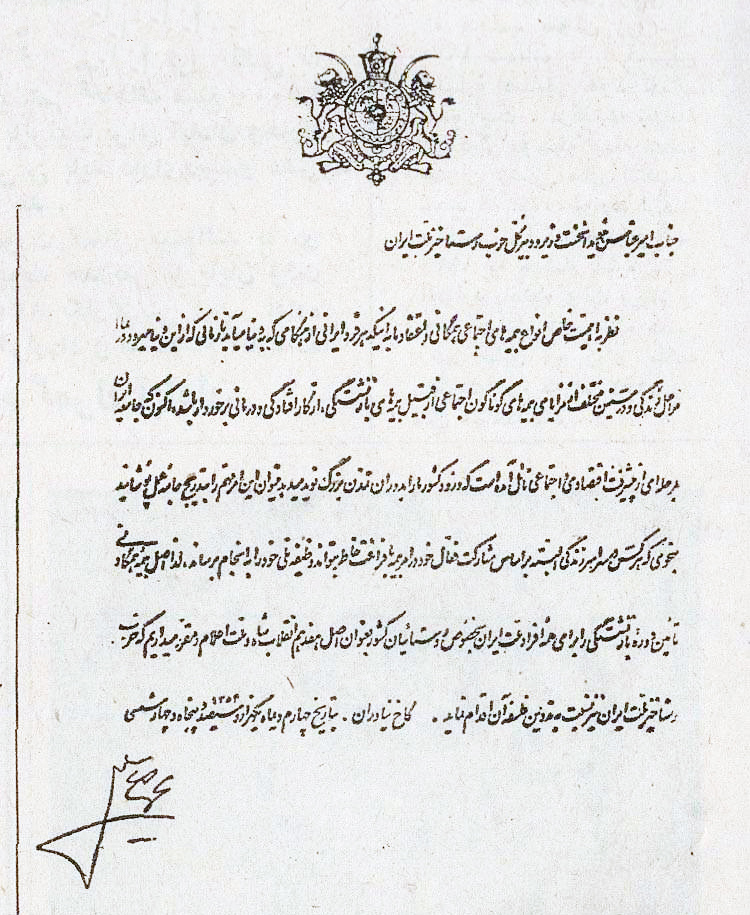 جناب امیرعباس هویدا نخست وزیر و دبیرکل حزب رستاخیز ملت ایران
نظر به اهمیت خاص انواع بیمه های اجتماعی همگانی و اعتقاد ما به اینکه هر فرد ایرانی از هنگامی که به دنیا میآید تا زمانی که از این دنیا میرود در تمام
مراحل زندگی و در سنین مختلف از مزایای بیمه های گوناگون اجتماعی از قبیل بیمه های بازنشستگی، از کار افتادگی و درمانی برخوردار باشد، اکنون که جامعه ایران
به مرحله ای از پیشرفت اقتصادی و اجتماعی نائل آمده است که ورود کشور ما را به دوران تمدن بزرگ نوید میدهد میتوان این امر مهم را بتدریج جامه عمل پوشانید
بنحوی که هر کس در سراسر زندگی البته بر اساس مشارکت فعال خود در امر بیمه با فراغت خاطر بتواند وظیفه ملی خود را به انجام برساند، لذا اصل بیمه همگانی
تأمین دوره بازنشستگی را برای همه افراد ملت ایران بخصوص روستائیان کشور بعنوان اصل هفدهم انقلاب شاه و ملت اعلام و مقرر میداریم که حزب
رستاخیز ملت ایران نیز نسبت به تدوین فلسفه آن اقدام نماید. کاخ نیاوران. بتاریخ چهارم دیماه یکهزار و سیصد و پنجاه و چهار شمسی ۱۳۵۴